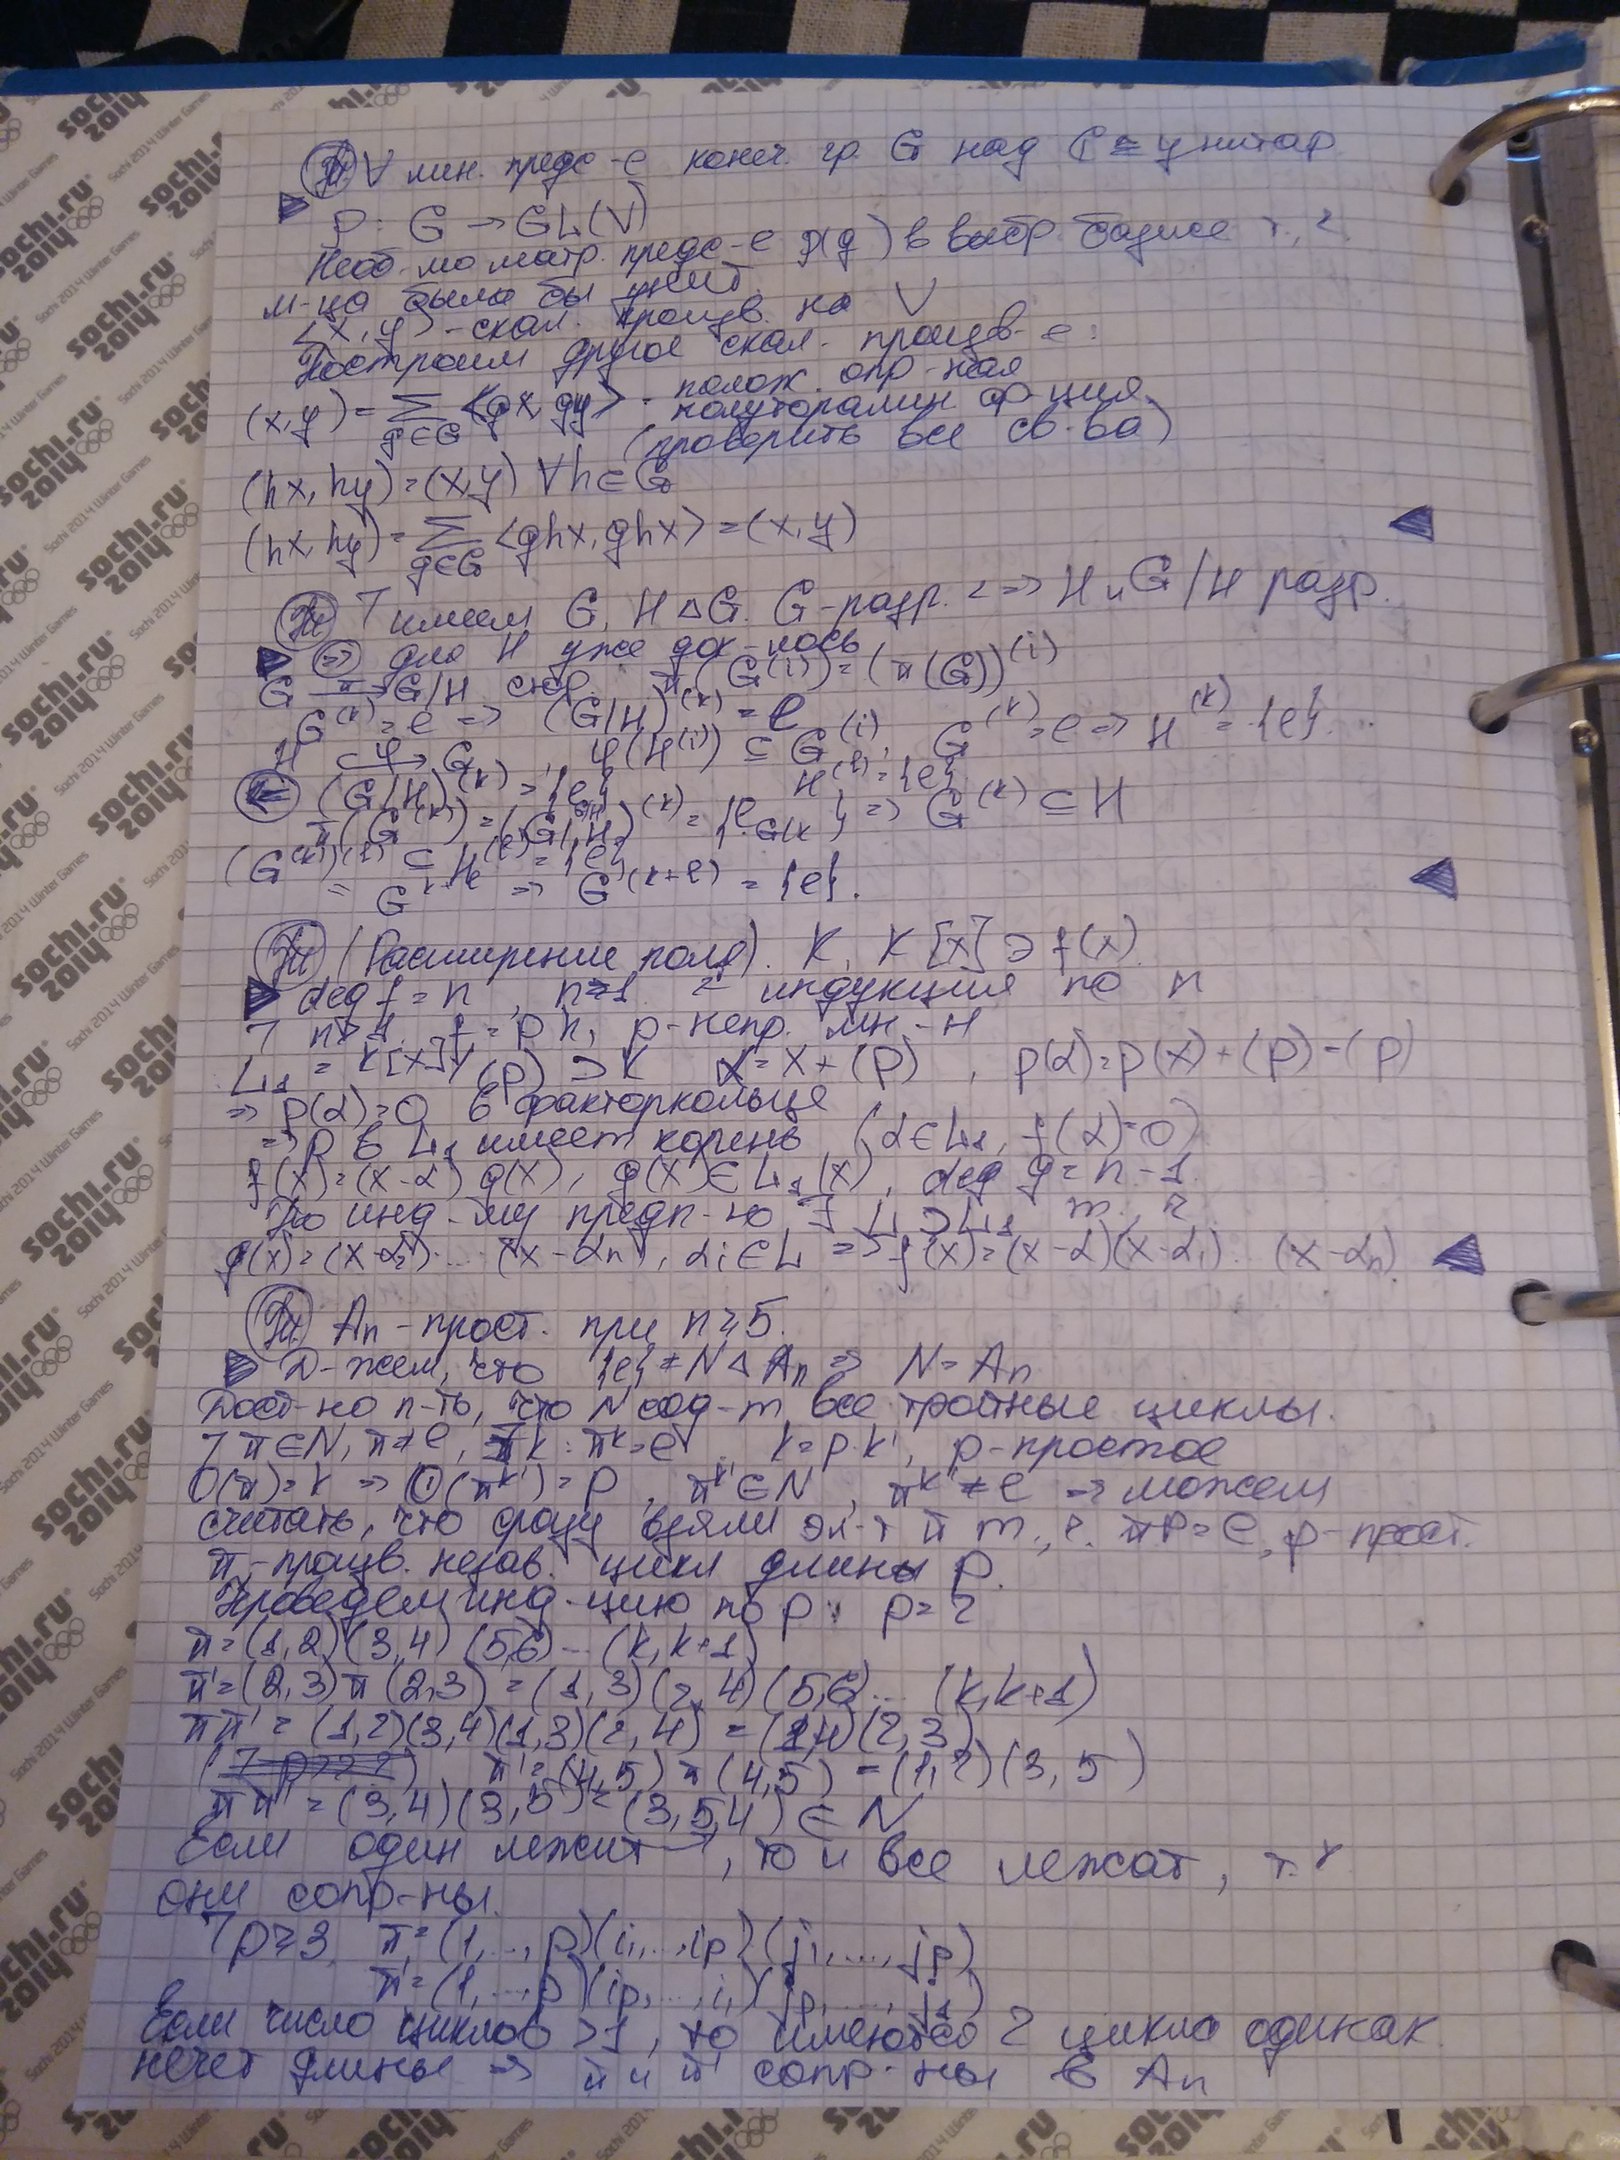 Th ∀ лин. предс-е конеч. гр. G над ℂ ≅ унитар
ρ: G → GL(V)
Необ-мо матр. предс-е ρ(g) в выбр. базисе т.ч.
м-ца была бы унит.
<x,y> - скал. произв. на V
Построим другое скал. произв-е:
(x,y) = ∑ <gx, gy> - полож. опр-ная
g∈G полуторалин ф-ция
(проверить все св-ва)
(hx, hy) = (x,y) ∀h∈G
(hx, hy) = ∑ <ghx, ghx> = (x,y)
g∈G
Th ⅂ имеем G, H ⊲ G. G-разр. <=> H и G/H разр.
(=>) для H уже док-лось
G →π G/H сюр. π(G^(i)) = (π(G))^(i)
G^(k) = e => (G/H)^(k) = e
H ⊂φ→ G, φ(H^(i)) ⊆ G^(i); G^(k) = e => H^(k) = {e}.
(<=) (G/H)^(k) = {e} H^(l) = {e}
π(G^(k)) = (G/H)^(k) = {e_G/H} => G^(k) ⊆ H
(G^(k))^(l) ⊂ H^(l) = {e}
= G^k+l => G^(k+l) = {e}.
Th (Расширение поля). K, K[x] ∋ f(x).
deg f = n, n≥1 индукция по n
⅂ n>1. f = ph, p-непр. мн-н
L₁ = K[x]/(p) ⊃ K α = x + (p), p(α) = p(x) + (p) = (p)
=> p(α) = 0 в факторкольце
=> p в L₁ имеет корень (α∈L₁, f(α)=0)
f(x) = (x-α) g(x), g(x) ∈ L₁(x), deg g = n-1.
По инд-му предп-ю ∃ L ⊃ L₁ т.ч
g(x) = (x-α₂) ... (x-αn), αi∈L => f(x) = (x-α)(x-α₁) .. (x-αn).
Th An - прост. при n≥5.
Д-жем, что {e} ≠ N ⊲ An => N = An
Дост-но п-ть, что N сод-т все тройные циклы.
⅂ π∈N, π≠e, ∃k: π^k = e k = p·k', p-простое
O(π) = k => O(π^k') = p, π^k' ∈ N, π^k' ≠ e => можем
считать, что сразу взяли эл-т π т.ч. π^p = e, p-прост.
π - произв. незав. цикл длины p.
Проведем инд-цию по p: p=2
π = (1,2)(3,4)(5,6)...(k,k+1)
π' = (2,3)π(2,3) = (1,3)(2,4)(5,6)...(k,k+1)
ππ' = (1,2)(3,4)(1,3)(2,4) = (1,4)(2,3)
π' = (4,5)π(4,5) = (1,2)(3,5)
ππ' = (3,4)(3,5) = (3,5,4) ∈ N
Если один лежит →, то и все лежат, т.к
они сопр-ны.
⅂ p≥3, π = (1,...,p)(i₁,...,ip)(j₁,...,jp)
π' = (1,...,p)(ip,...,i₁)(jp,...,j₁)
Если число циклов >1, то имеются 2 цикла одинак.
нечет длины => π и π' сопр-ны в An